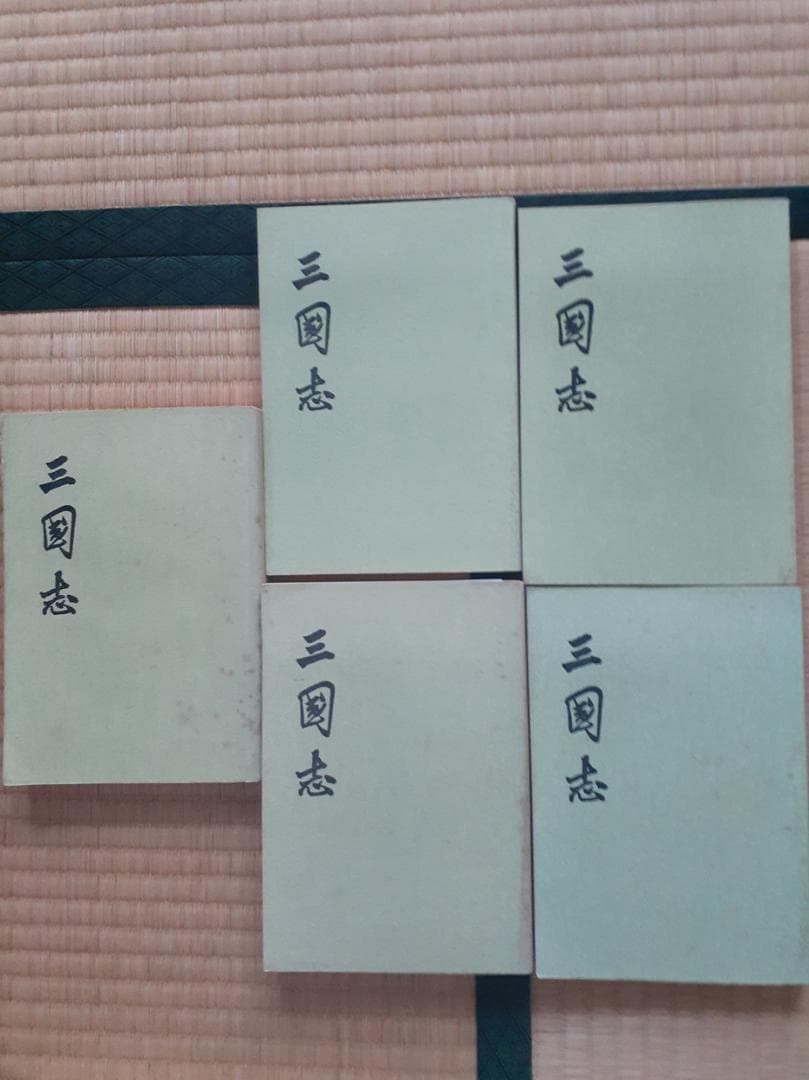 三國志
三國志
三國志
三國志
三國志